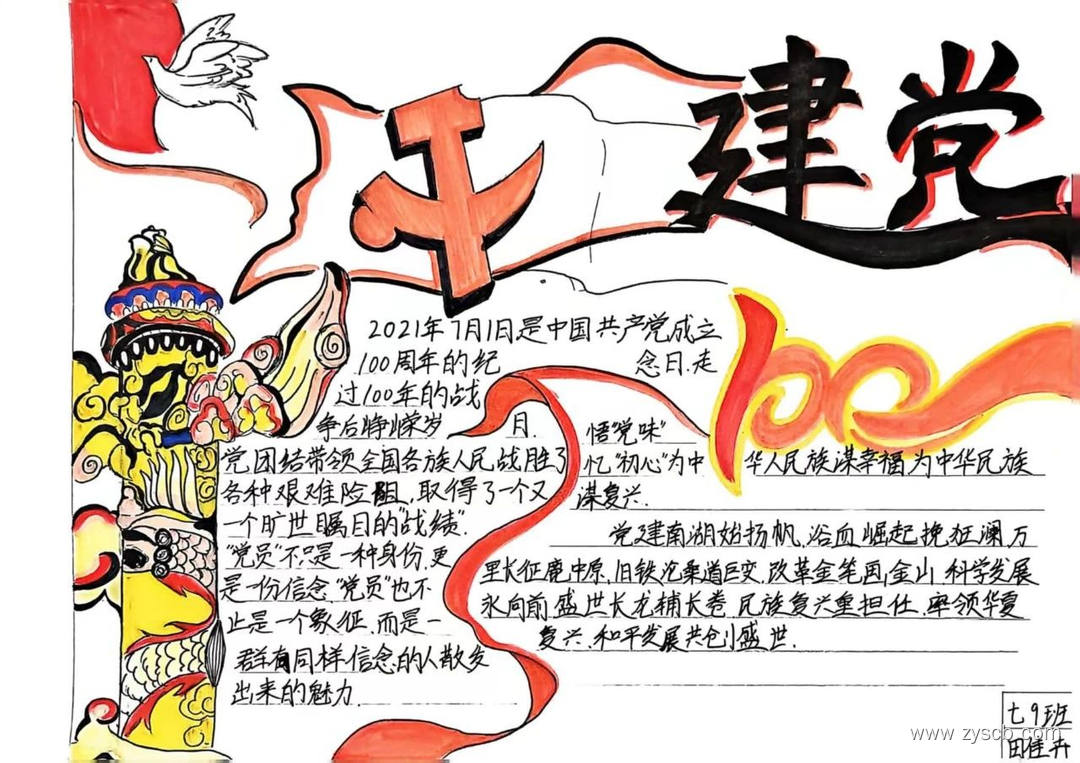 建党
100
2021年7月1日是中国共产党成立
100周年的纪念日.走
过100年的战
争后峥嵘岁月.
党团结带领全国各族人民战胜了
各种艰难险阻,取得了一个又
一个旷世瞩目的"战绩".
"党员"不只是一种身份,更
是一份信念,"党员"也不
止是一个象征,而是一
群有同样信念的人散发
出来的魅力.
悟"党味"
忆"初心"为中华人民族谋幸福为中华民族
谋复兴.
党建南湖始扬帆,浴血崛起挽狂澜万
里长征鹿中原,旧铁沧桑道巨变.改革金笔画金山,科学发展
永向前,盛世长龙铺长卷,民族复兴重担任,率领华夏
复兴,和平发展共创盛世.
七9班
田佳卉
www.zyscb.com